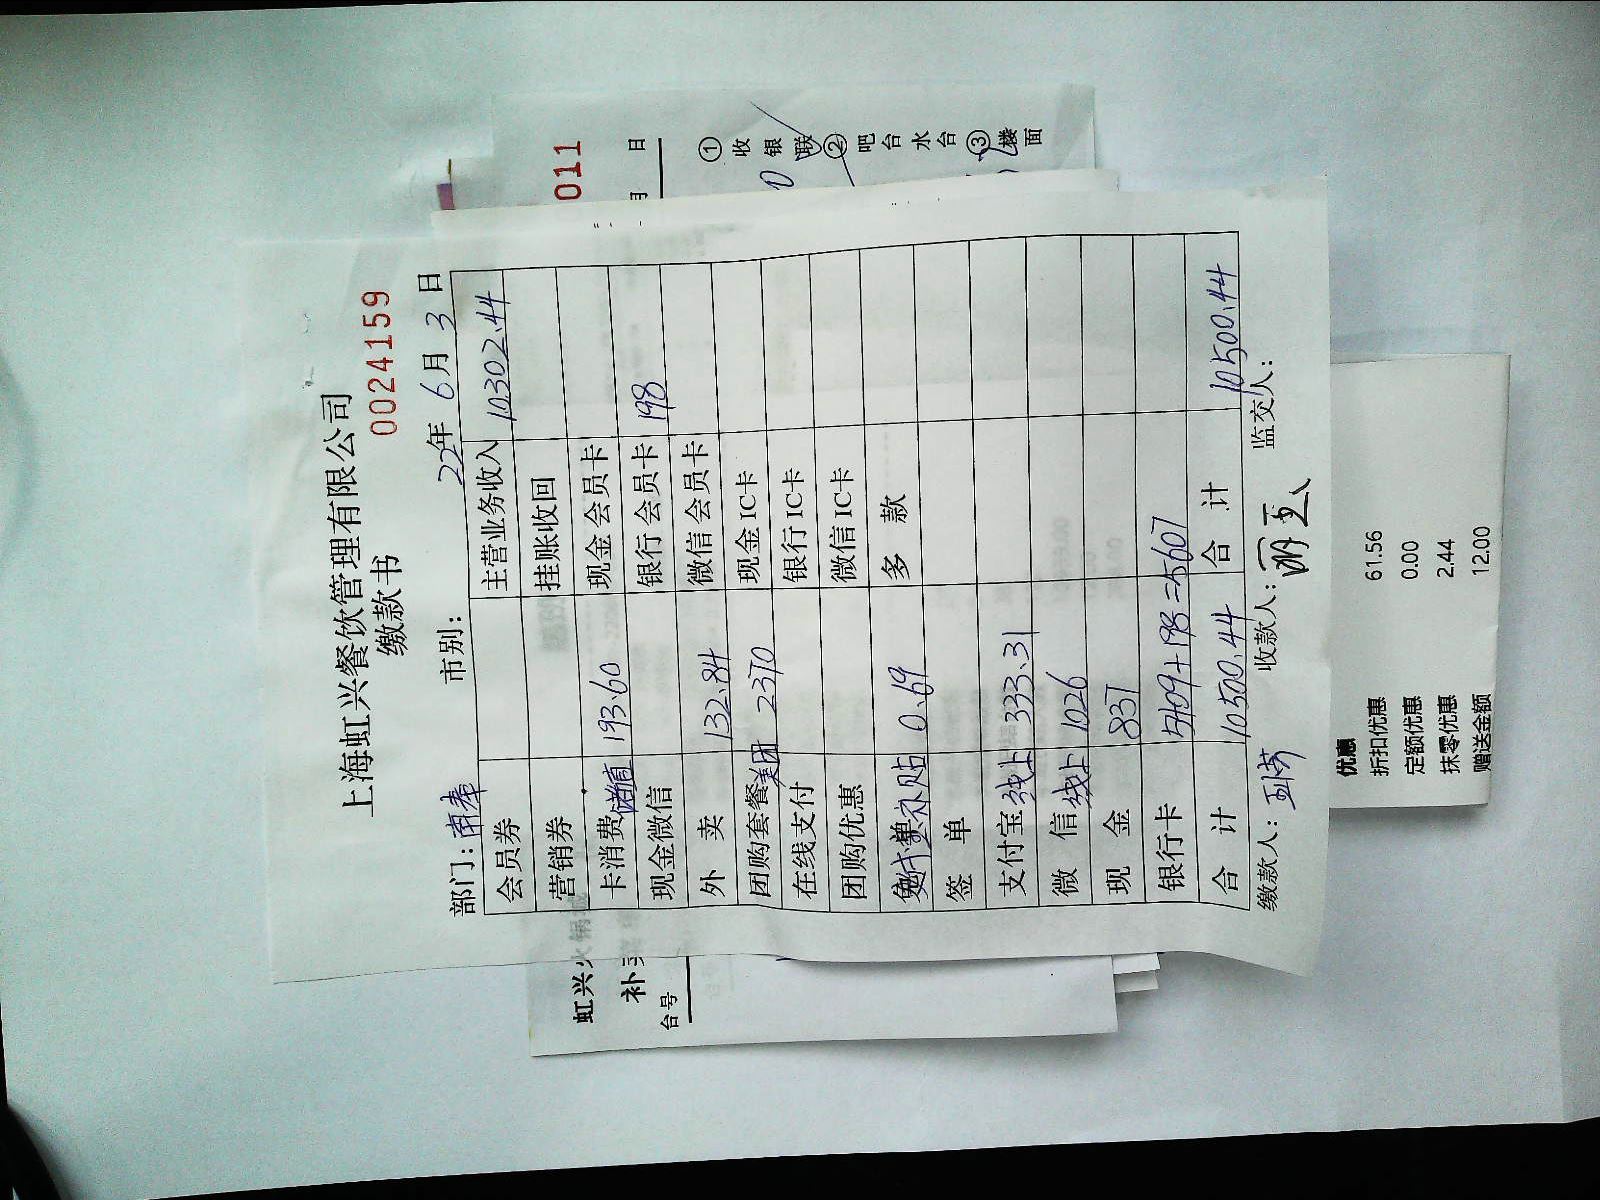 上海虹兴餐饮管理有限公司
缴款书
0024159
部门:南奉 市别: 22年 6月 3日
会员券 主营业务收入 10302.44
营销券 挂账收回
卡消费储值 193.60 现金会员卡
现金微信 银行会员卡 198
外 卖 132.84 微信会员卡
团购套餐美团 2370 现金IC卡
在线支付 银行IC卡
团购优惠 微信IC卡
补贴 0.69 多 款
签 单
支付宝线上 333.31
微 信线上 1026
现 金 837
银行卡 5409+198=5607
合 计 10500.44 合 计 10500.44
缴款人: 收款人: 监交人:
011
日
月
①收银联②吧台水台③楼面
虹兴火锅城
补
台号
优惠
折扣优惠 61.56
定额优惠 0.00
抹零优惠 2.44
赠送金额 12.00